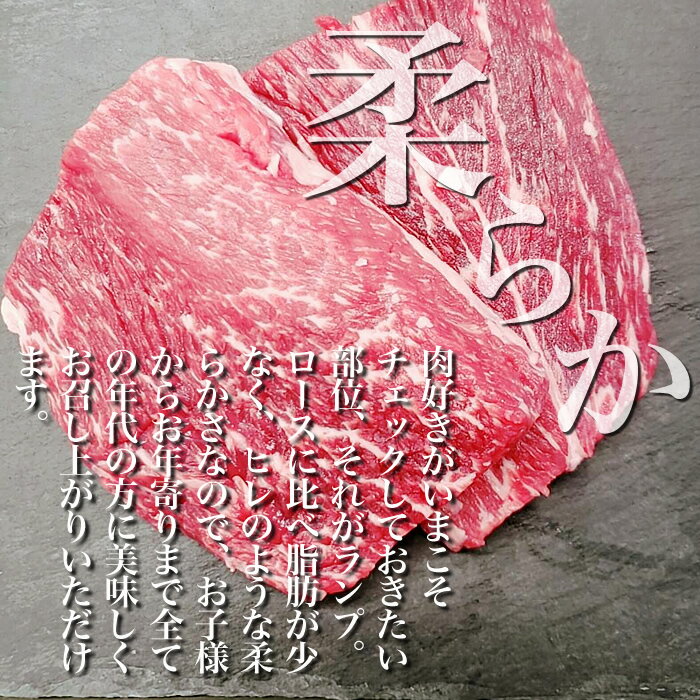 柔らか
肉好きがいまこそ
チェックしておきたい
部位、それがランプ。
ロースに比べ脂肪が少
なく、ヒレのような柔
らかさなので、お子様
からお年寄りまで全て
の年代の方に美味しく
お召し上がりいただけ
ます。